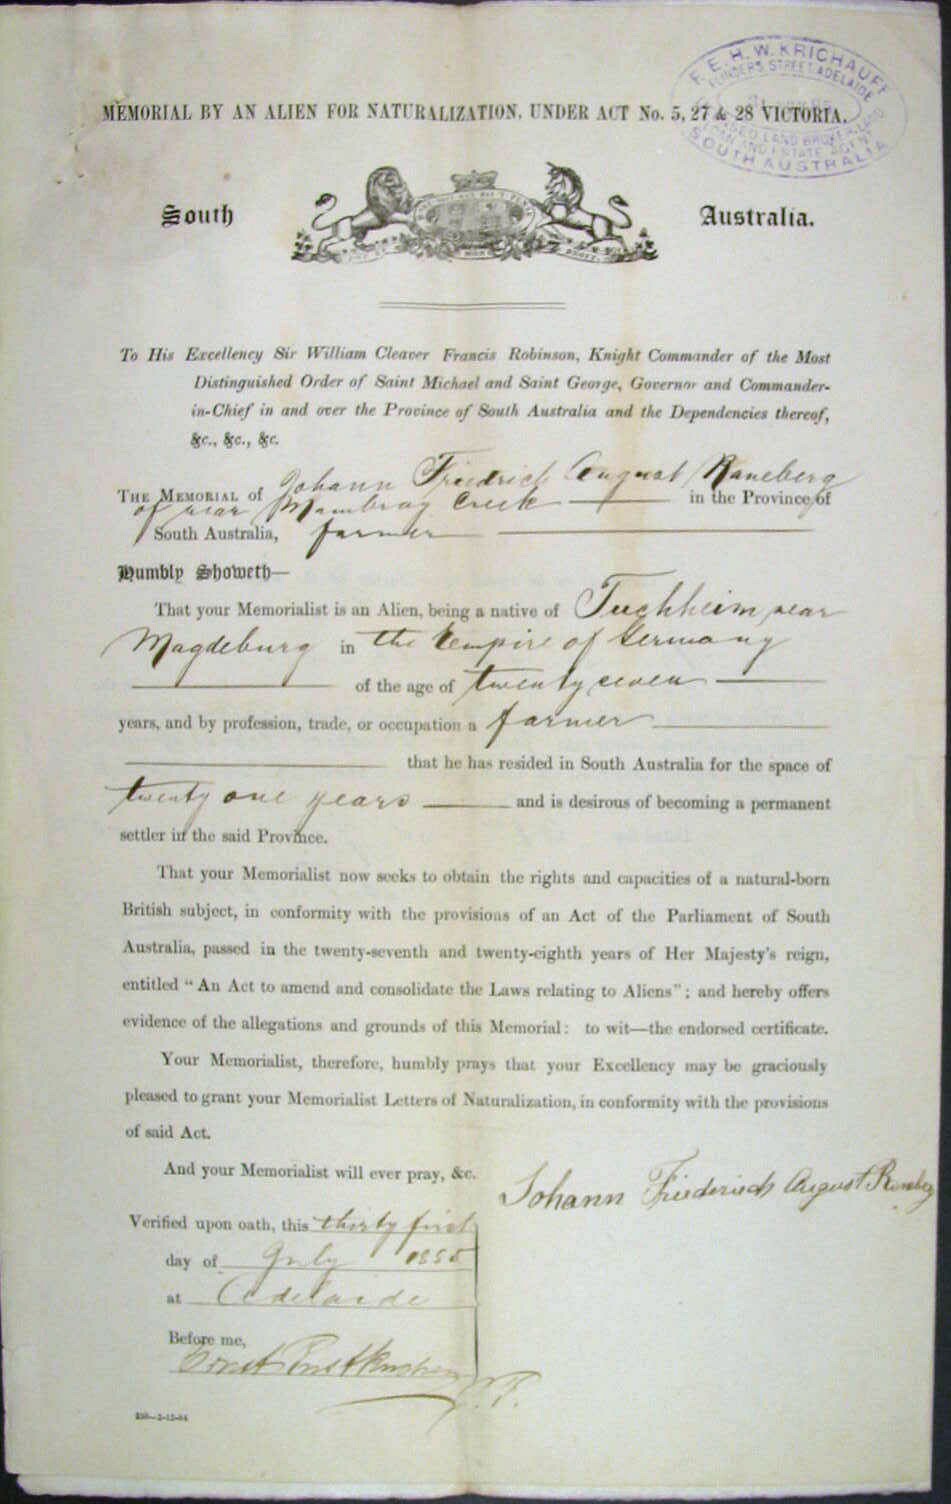 F. E. H. W. KRICHAUFF
FLINDERS STREET, ADELAIDE
LAND BROKER
AND ESTATE AGENT
SOUTH AUSTRALIA
MEMORIAL BY AN ALIEN FOR NATURALIZATION, UNDER ACT No. 5, 27 & 28 VICTORIA.
South Australia.
To His Excellency Sir William Cleaver Francis Robinson, Knight Commander of the Most
Distinguished Order of Saint Michael and Saint George, Governor and Commander-
in-Chief in and over the Province of South Australia and the Dependencies thereof,
&c., &c., &c.
THE MEMORIAL of Johann Friedrich August Raneberg
of near Mambray Creek in the Province of
South Australia, farmer
Humbly Showeth—
That your Memorialist is an Alien, being a native of Tuchheim near
Magdeburg in the Empire of Germany
of the age of twenty seven
years, and by profession, trade, or occupation a farmer
that he has resided in South Australia for the space of
twenty one years and is desirous of becoming a permanent
settler in the said Province.
That your Memorialist now seeks to obtain the rights and capacities of a natural-born
British subject, in conformity with the provisions of an Act of the Parliament of South
Australia, passed in the twenty-seventh and twenty-eighth years of Her Majesty's reign,
entitled "An Act to amend and consolidate the Laws relating to Aliens"; and hereby offers
evidence of the allegations and grounds of this Memorial: to wit—the endorsed certificate.
Your Memorialist, therefore, humbly prays that your Excellency may be graciously
pleased to grant your Memorialist Letters of Naturalization, in conformity with the provisions
of said Act.
And your Memorialist will ever pray, &c.
Johann Friederich August
Verified upon oath, this thirty first
day of July 1885
at Adelaide
Before me,
J.P.
250—2-12-84